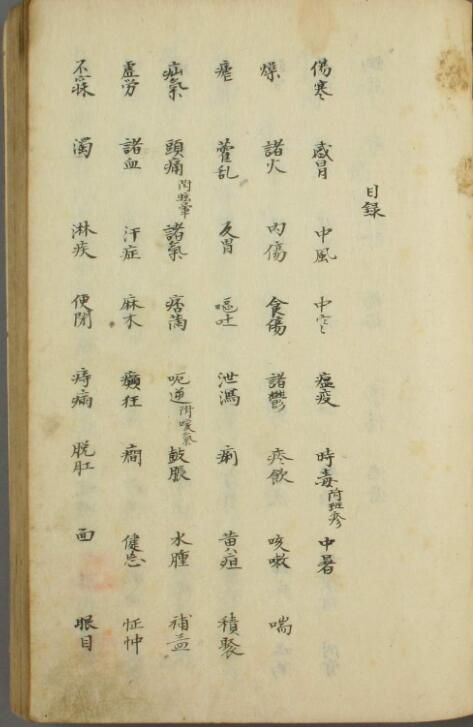 目録
傷寒 感冒 中風 中寒 瘟疫 時毒附班疹 中暑
燥 諸火 内傷 食傷 諸鬱 痰飲 咳嗽 喘
瘧 藿乱 反胃 嘔吐 泄瀉 痢 黄疸 積聚
疝氣 頭痛附眩暈 諸氣 痞満 呃逆附噯氣 鼓脹 水腫 補益
虚労 諸血 汗症 麻木 癲狂 癇 健忘 怔忡
不寐 濁 淋疾 便閉 痔病 脱肛 面 眼目